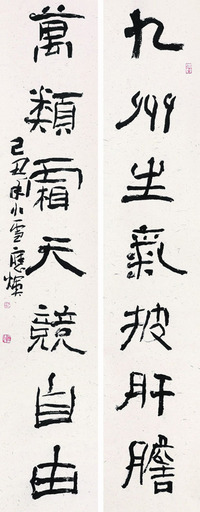 九州生氣披肝膽
萬類霜天競自由
己丑年小雪應輝